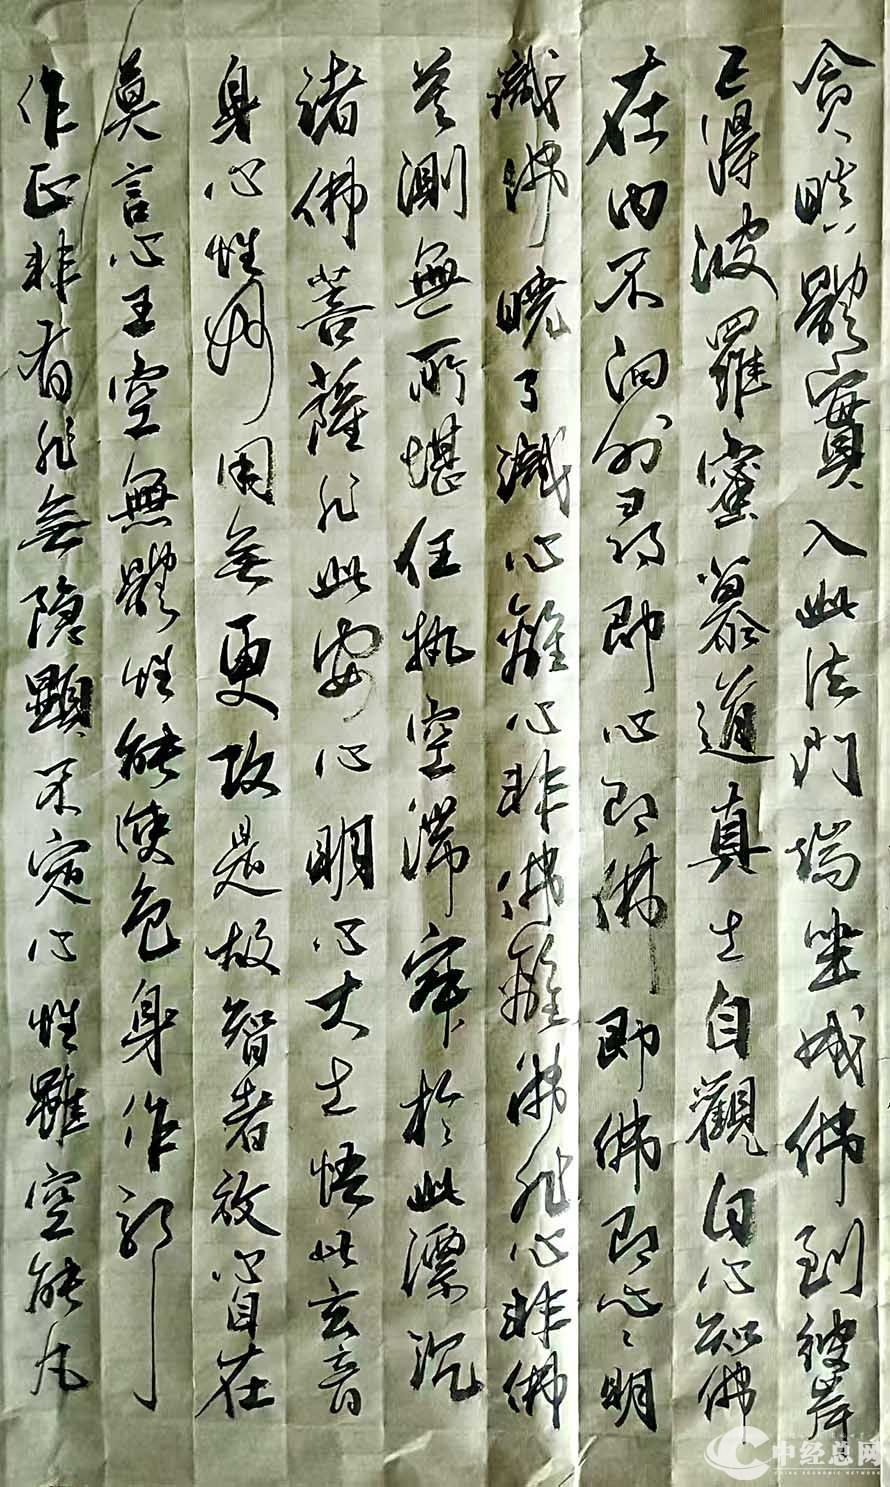 貪瞋體實入此法門端坐成佛到彼岸
已得波羅蜜慕道真士自觀自心知佛
在内不向外尋即心即佛即佛即心〻明
識佛曉了識心離心非佛離佛非心非佛
莫測無所堪任執空滯寂於此漂沉
诸佛菩薩非此安心明心大士悟此玄音
身心性妙用無更改是故智者放心自在
莫言心王空無體性能使色身作邪
作正非有非無隐顯不定心性雖空能凡
中经总网
CHINA ECONOMIC NETWORK